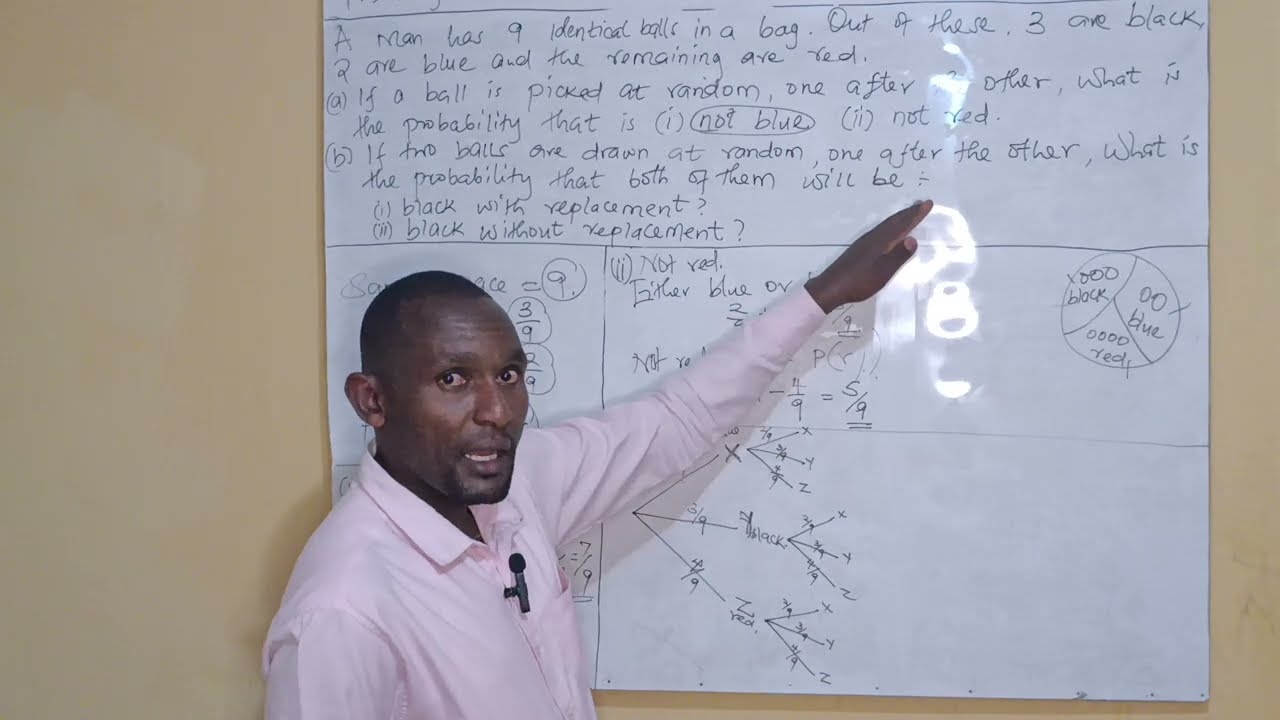 A Man has 9 identical balls in a bag. Out of these, 3 are black,
2 are blue and the remaining are red.
(a) If a ball is picked at random, one after other, What is
the probability that is (i) not blue (ii) not red.
(b) If two balls are drawn at random, one after the other, What is
the probability that both of them will be :-
(i) black with replacement?
(ii) black without replacement?
= 9.
3/9
/9
= 7/9
(ii) Not red.
Either blue or
/9
Not re P(r)
- 4/9 = 5/9
X 2/9 X
3/9 Y
4/9 Z
3/9 Y black 2/9 X
3/9 Y
4/9 Z
4/9 Z red. 2/9 X
3/9 Y
4/9 Z
black
blue
red